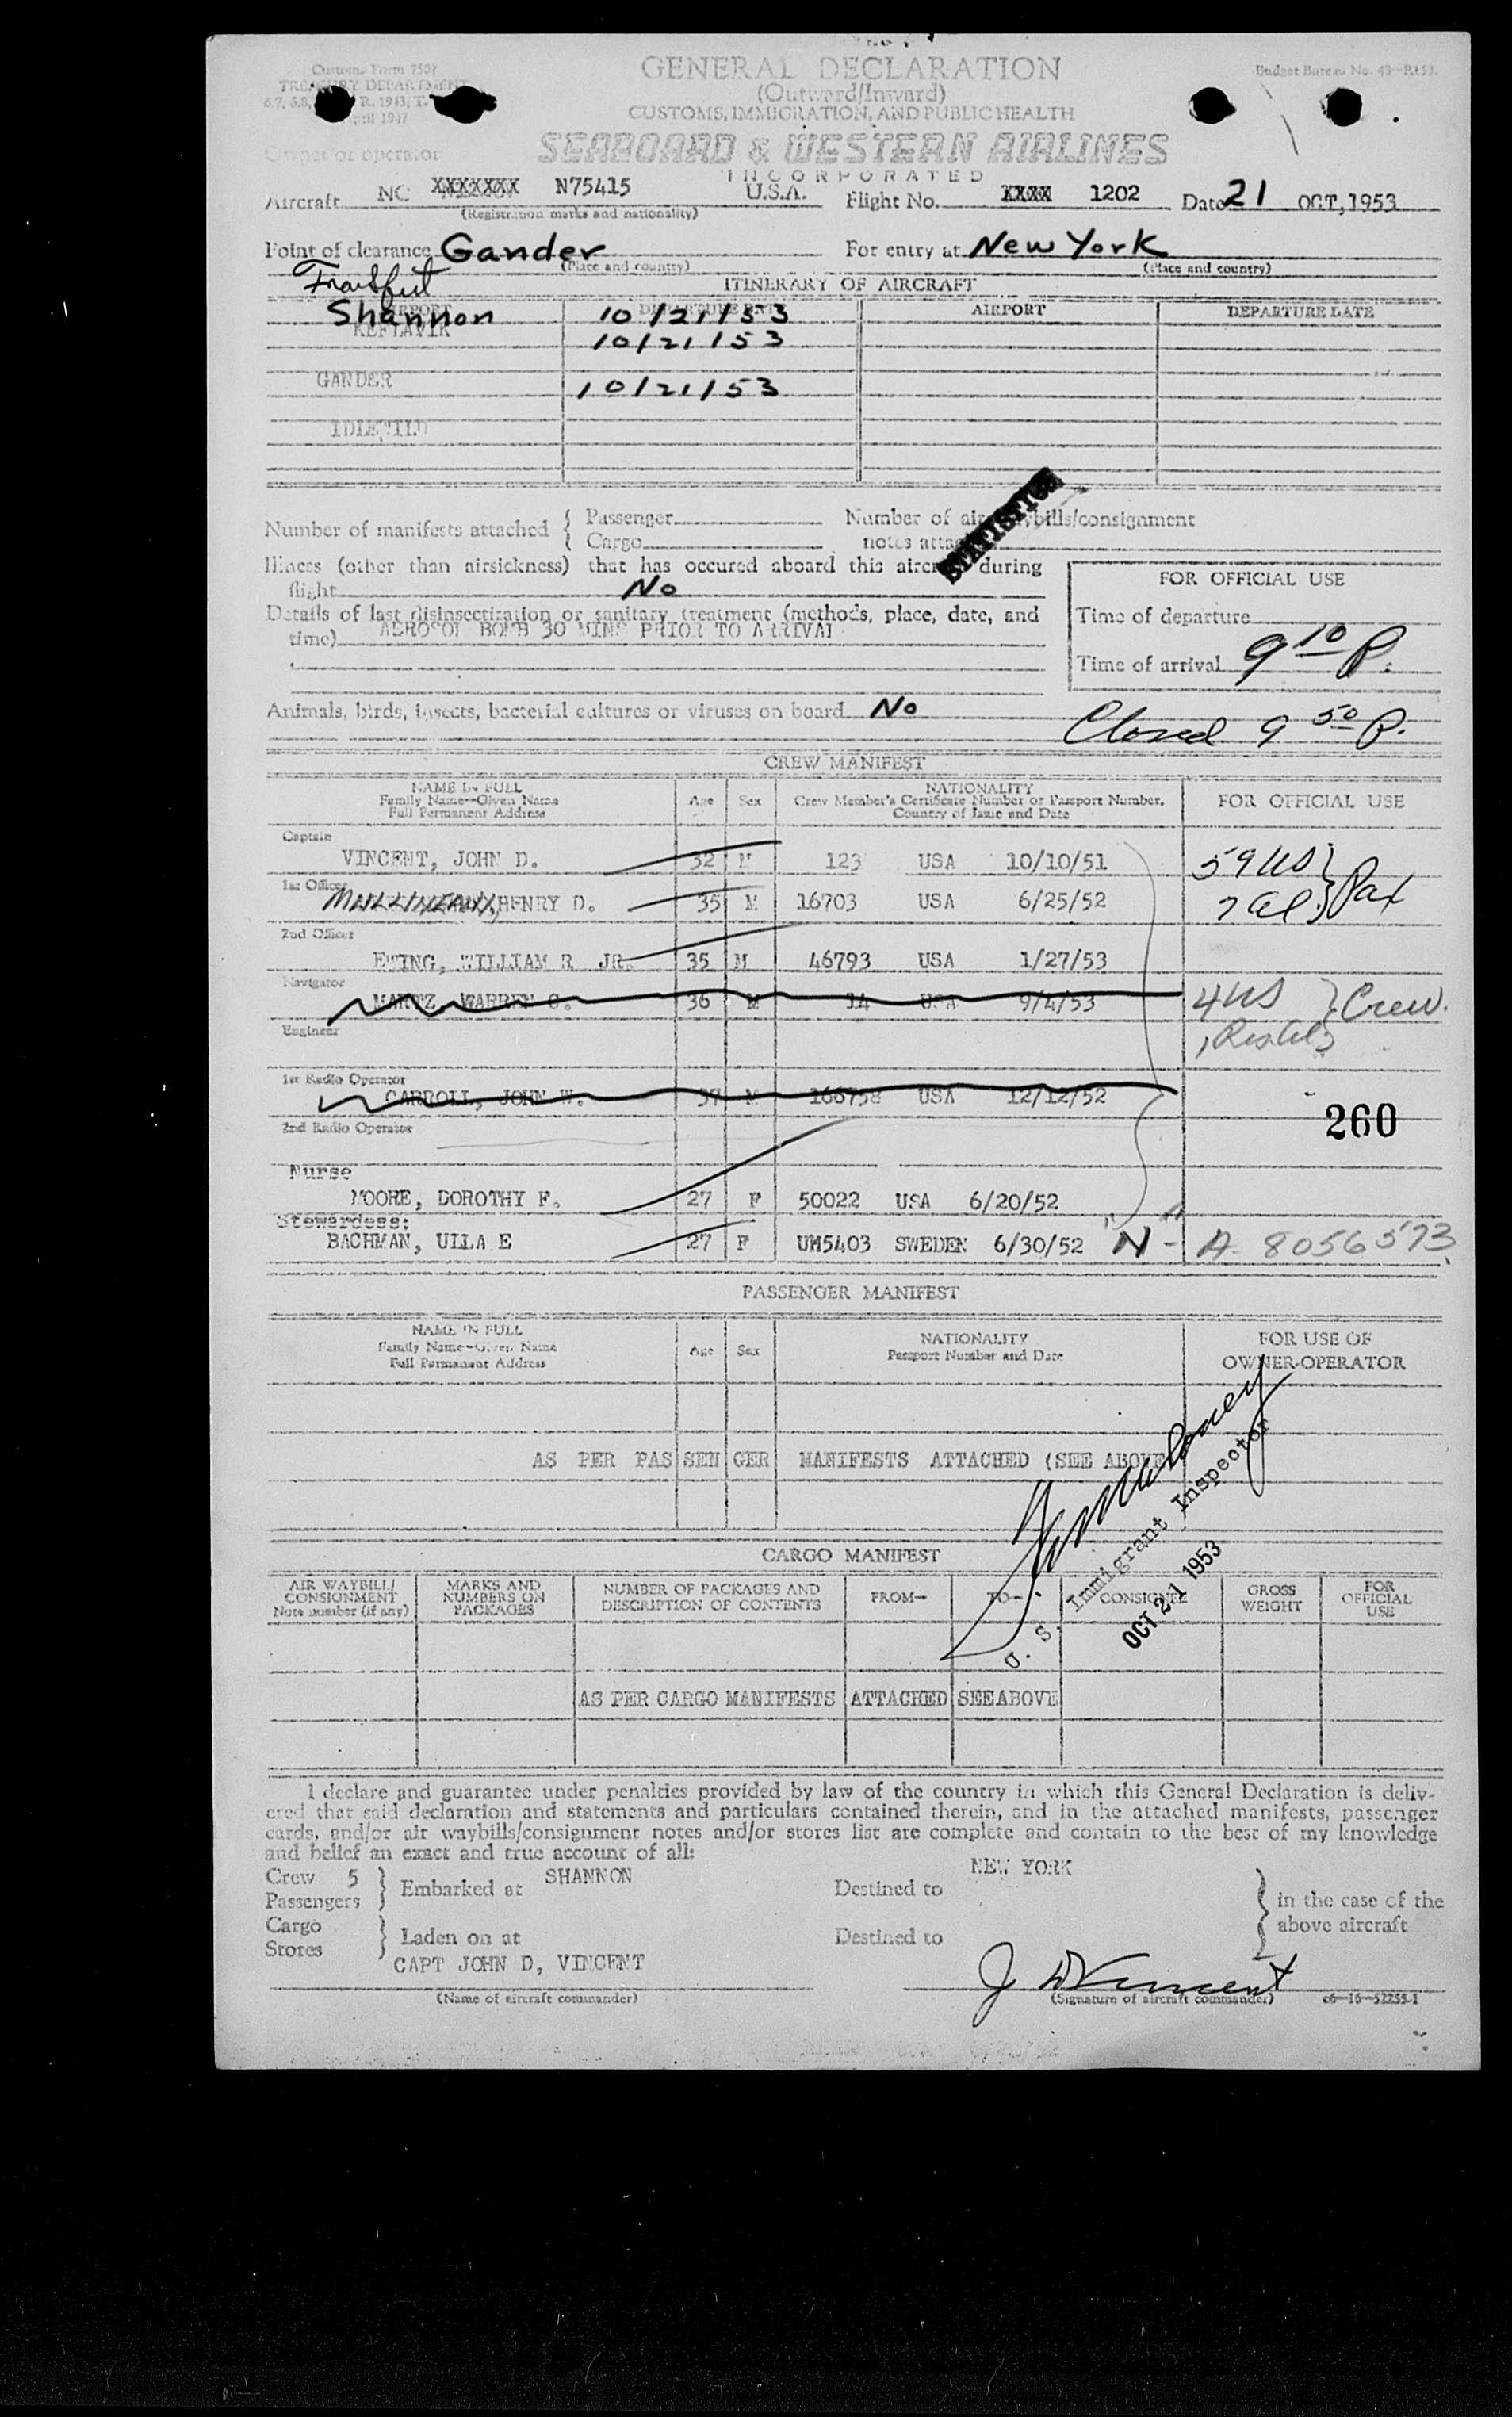 Customs Form 7507
TREASURY DEPARTMENT
April 1947
GENERAL DECLARATION
(Outward/Inward)
CUSTOMS, IMMIGRATION, AND PUBLIC HEALTH
Budget Bureau No.
Owner or operator
SEABOARD & WESTERN AIRLINES
INCORPORATED
Aircraft NC XXXXXXX N75415 U.S.A. Flight No. XXXX 1202 Date 21 OCT, 1953
(Registration marks and nationality)
Point of clearance Gander For entry at New York
(Place and country) (Place and country)
ITINERARY OF AIRCRAFT
AIRPORT DEPARTURE DATE AIRPORT DEPARTURE DATE
Shannon 10/21/53
KEFLAVIK 10/21/53
GANDER 10/21/53
IDLEWILD
STATISTICS
Number of manifests attached { Passenger Number of air waybills/consignment
Cargo notes attached
Illness (other than airsickness) that has occured aboard this aircraft during
flight No
Details of last disinsectization or sanitary treatment (methods, place, date, and
time) AEROSOL BOMB 30 MINS PRIOR TO ARRIVAL
FOR OFFICIAL USE
Time of departure
Time of arrival 9 10 P.
Animals, birds, insects, bacterial cultures or viruses on board No
Closed 9 50 P.
CREW MANIFEST
NAME IN FULL
Family Name--Given Name
Full Permanent Address
Age Sex
NATIONALITY
Crew Member's Certificate Number or Passport Number,
Country of Issue and Date
FOR OFFICIAL USE
Captain
VINCENT, JOHN D. 32 M 123 USA 10/10/51 59 US } Pax
1st Officer
HENRY D. 35 M 16703 USA 6/25/52 7 al.
2nd Officer
EWING, WILLIAM R JR. 35 M 46793 USA 1/27/53
Navigator
MARTZ, WARREN C. 36 M 14 USA 9/4/53 4 US } Crew.
Engineer
1st Radio Operator
CARROLL, JOHN W. 37 M 166758 USA 12/12/52
260
2nd Radio Operator
Nurse
MOORE, DOROTHY F. 27 F 50022 USA 6/20/52
Stewardess:
BACHMAN, ULLA E 27 F UM5403 SWEDEN 6/30/52 "N" - A- 8056573
PASSENGER MANIFEST
NAME IN FULL
Family Name--Given Name
Full Permanent Address
Age Sex
NATIONALITY
Passport Number and Date
FOR USE OF
OWNER-OPERATOR
AS PER PASSENGER MANIFESTS ATTACHED (SEE ABOVE
U. S. Immigrant Inspector
OCT 21 1953
CARGO MANIFEST
AIR WAYBILL/
CONSIGNMENT
Note number (if any)
MARKS AND
NUMBERS ON
PACKAGES
NUMBER OF PACKAGES AND
DESCRIPTION OF CONTENTS
FROM-- TO-- CONSIGNEE
GROSS
WEIGHT
FOR
OFFICIAL
USE
AS PER CARGO MANIFESTS ATTACHED SEE ABOVE
I declare and guarantee under penalties provided by law of the country in which this General Declaration is deliv-
ered that said declaration and statements and particulars contained therein, and in the attached manifests, passenger
cards, and/or air waybills/consignment notes and/or stores list are complete and contain to the best of my knowledge
and belief an exact and true account of all:
Crew 5 } Embarked at SHANNON Destined to NEW YORK } in the case of the
Passengers
Cargo } Laden on at Destined to above aircraft
Stores
CAPT JOHN D, VINCENT J D Vincent
(Name of aircraft commander) (Signature of aircraft commander) c6-16-52255-1